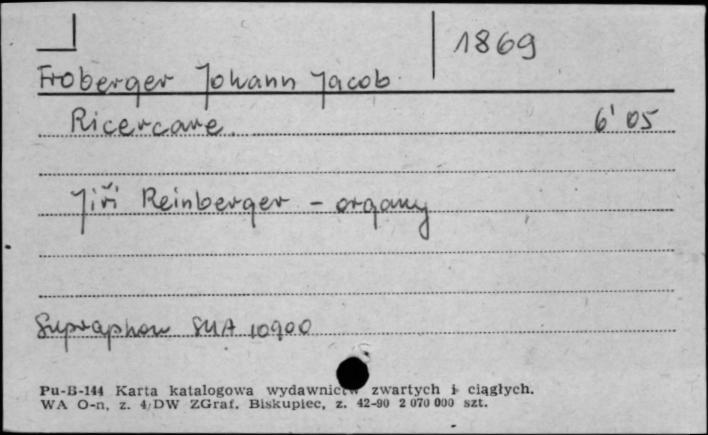 1869
Froberger Johann Jacob
Ricercare. 6'05
Jiří Reinberger - organy
Supraphon SUA 10900
Pu-B-144 Karta katalogowa wydawnictw zwartych i ciągłych.
WA O-n, z. 4/DW ZGraf. Biskupiec, z. 42-90 2 070 000 szt.